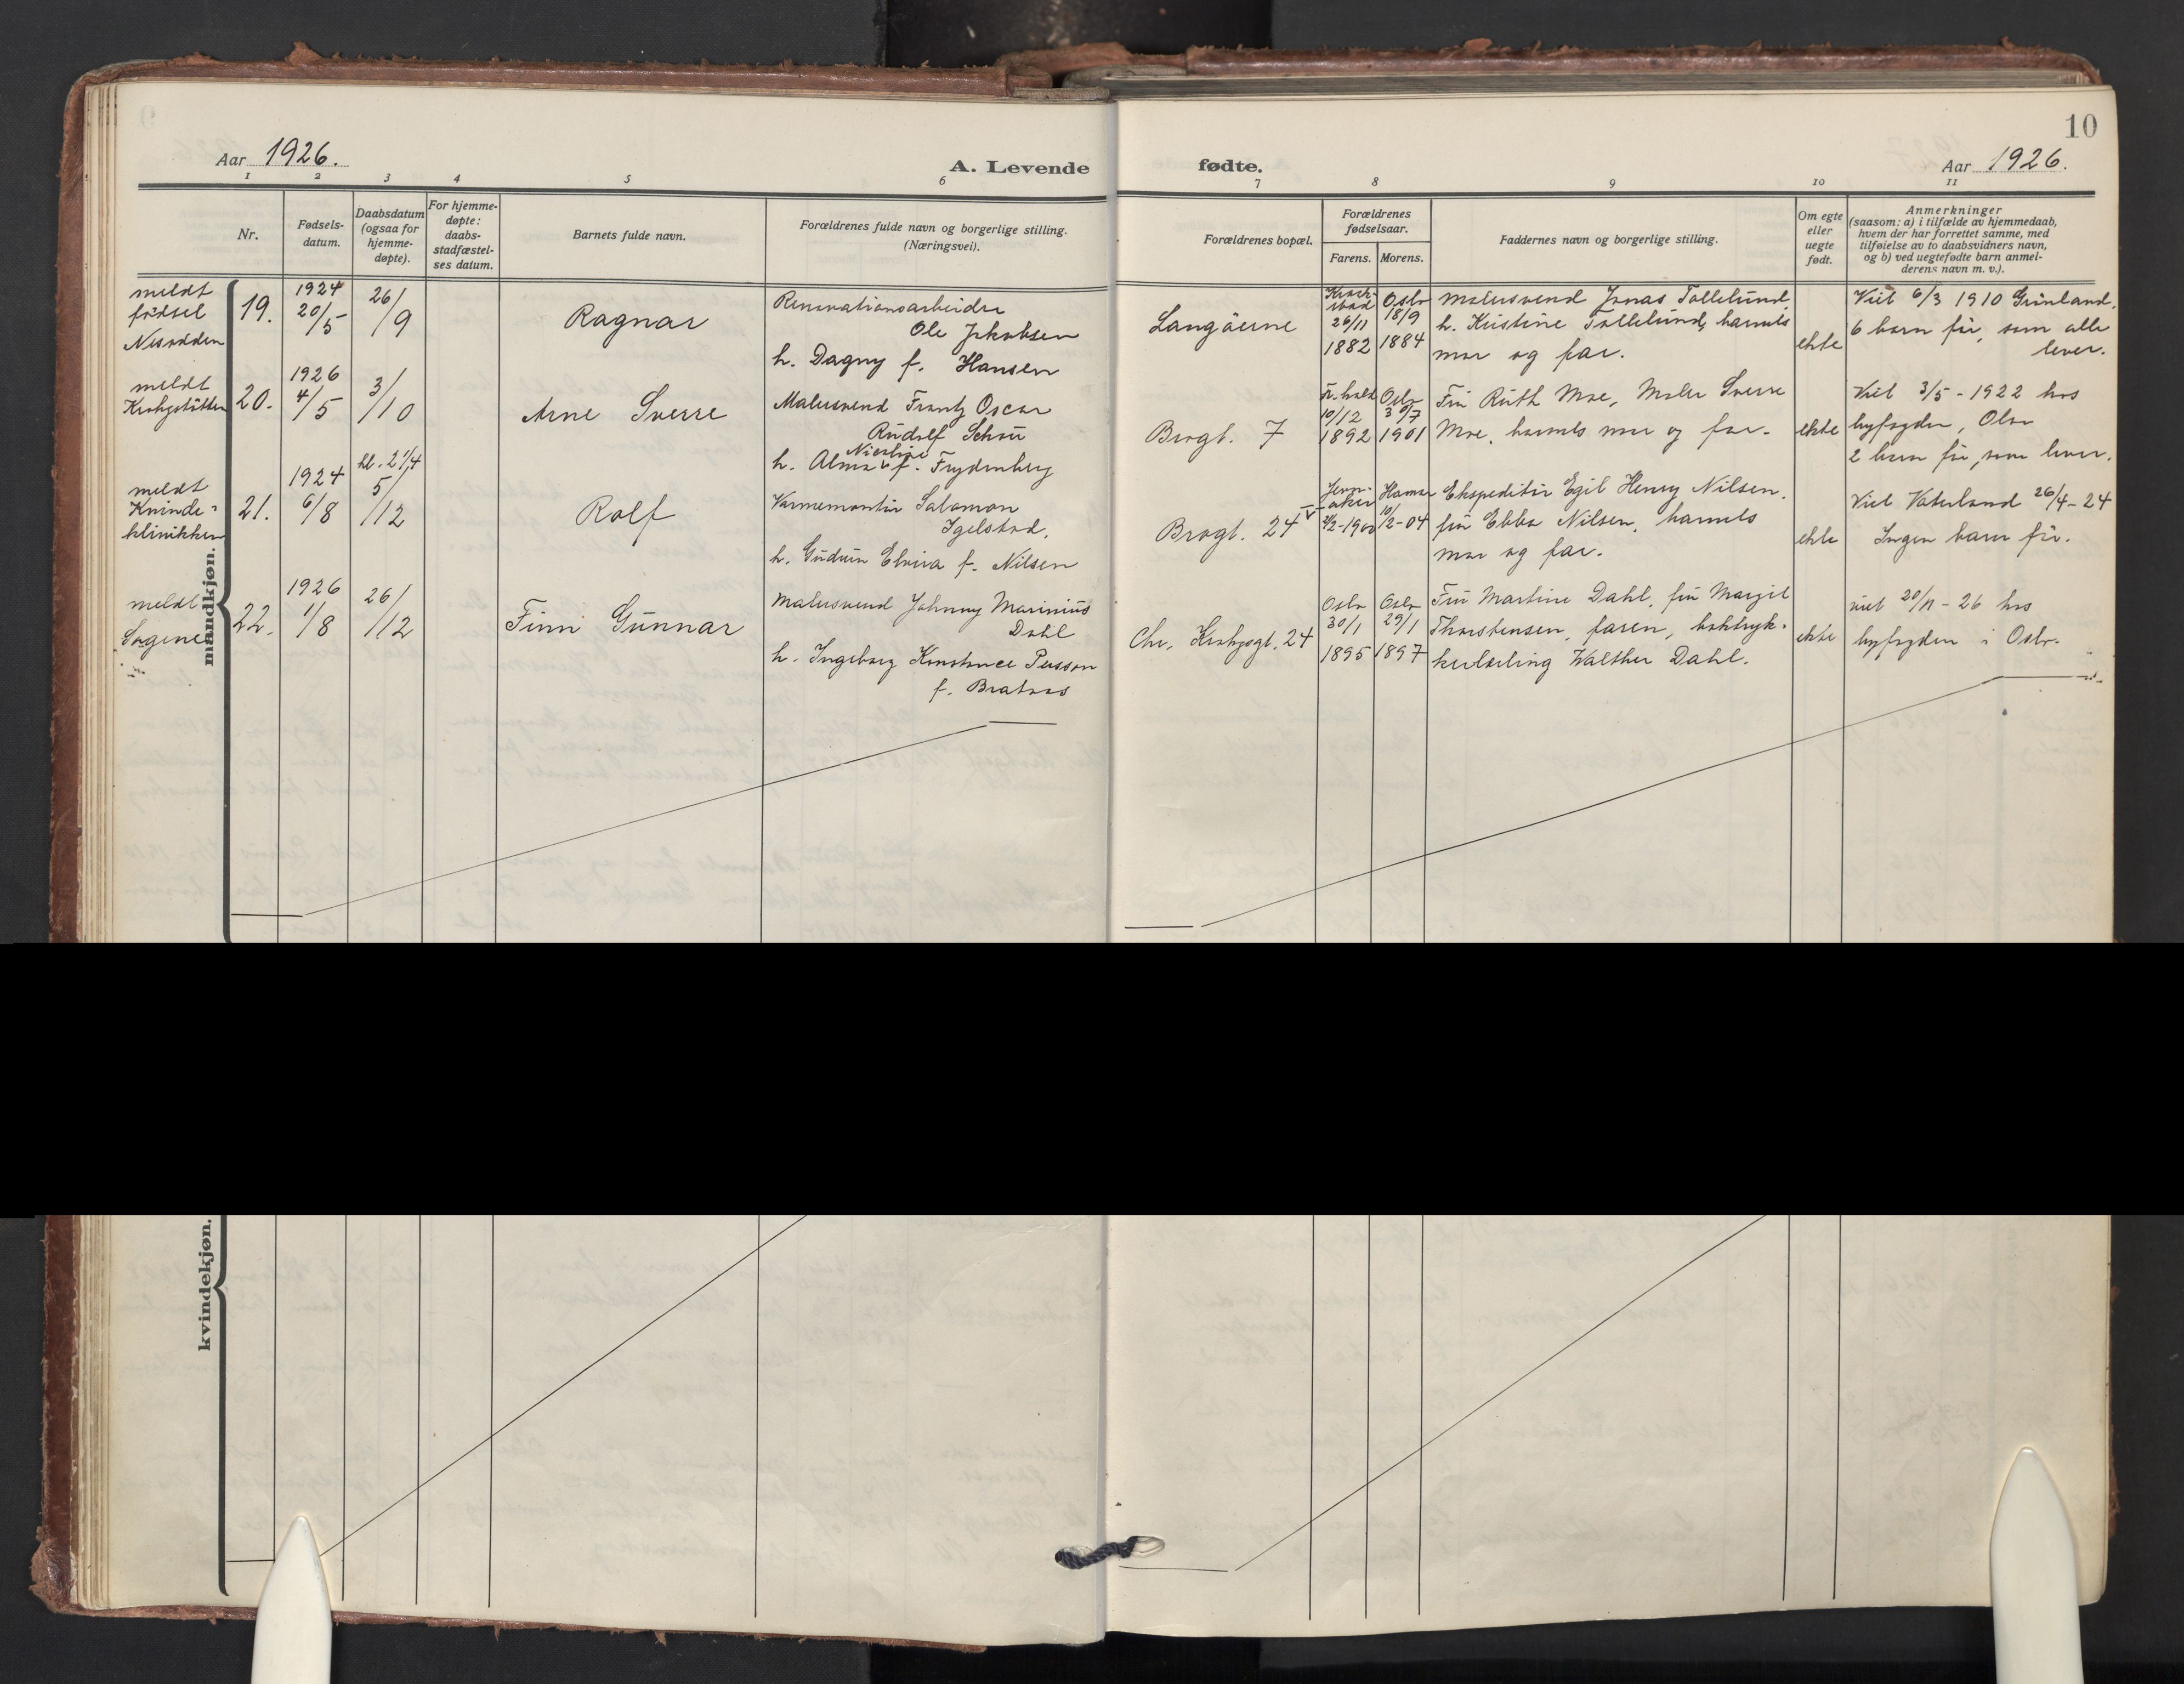 10
Aar 1926.
A. Levende
fødte.
Aar 1926.
1 2 3 4 5 6
7 8 9 10 11
Nr.
Fødsels-
datum.
Daabsdatum
(ogsaa for
hjemme-
døpte).
For hjemme-
døpte:
daabs-
stadfæstel-
ses datum.
Barnets fulde navn.
Forældrenes fulde navn og borgerlige stilling.
(Næringsvei).
Forældrenes bopæl.
Forældrenes
fødselsaar.
Farens. Morens.
Faddernes navn og borgerlige stilling.
Om egte
eller
uegte
født.
Anmerkninger
(saasom: a) i tilfælde av hjemmedaab,
hvem der har forrettet samme, med
tilføielse av to daabsvidners navn,
og b) ved uegtefødte barn anmel-
derens navn m. v.).
mandkjøn.
meldt
födsel
Nesodden
19.
1924
20/5
26/9
Ragnar
Renovationsarbeider
Ole Jakobsen
h. Dagny f. Hansen
Langöerne
26/11
1882
Oslo
18/9
1884
Malersvend Jonas Tollelund,
h. Kristine Tollelund, barnets
mor og far.
ekte
Viet 6/3 1910 Grönland,
6 barn för, som alle
lever.
meldt
Krohgstötten
20.
1926
4/5
3/10
Arne Sverre
Malersvend Frantz Oscar
Rudolf Schou
h. Alma Nicoline f. Frydenberg
Brogt. 7
Fr.hald
10/12
1892
Oslo
30/7
1901
Fru Ruth Moe, Maler Sverre
Moe, barnets mor og far.
ekte
Viet 3/5 - 1922 hos
byfogden, Oslo
2 barn för, som lever.
meldt
Kvinde-
klinikken
21.
1924
6/8
kl. 2 1/4
5/12
Rolf
Varmemontör Salomon
Igelstad,
h. Gudrun Elvira f. Nilsen
Brogt. 24
Jevn-
aker
Hamar
10/2-04
Ekspeditör Egil Henry Nilsen,
fru Ebba Nilsen, barnets
mor og far.
ekte
Viet Vaterland 26/4-24
Ingen barn för.
meldt
Sagene
22.
1926
1/8
26/12
Finn Gunnar
Malersvend Johnny Marinius
Dahl
h. Ingeborg Konstance Persson
f. Brataas
Chr. Krohgsgt. 24
Oslo
30/1
1895
Oslo
29/1
1897
Fru Martine Dahl, fru Margit
Thorstensen, faren, boktryk-
kerlærling Walther Dahl.
ekte
viet 20/11 - 26 hos
byfogden i Oslo.
kvindekjøn.